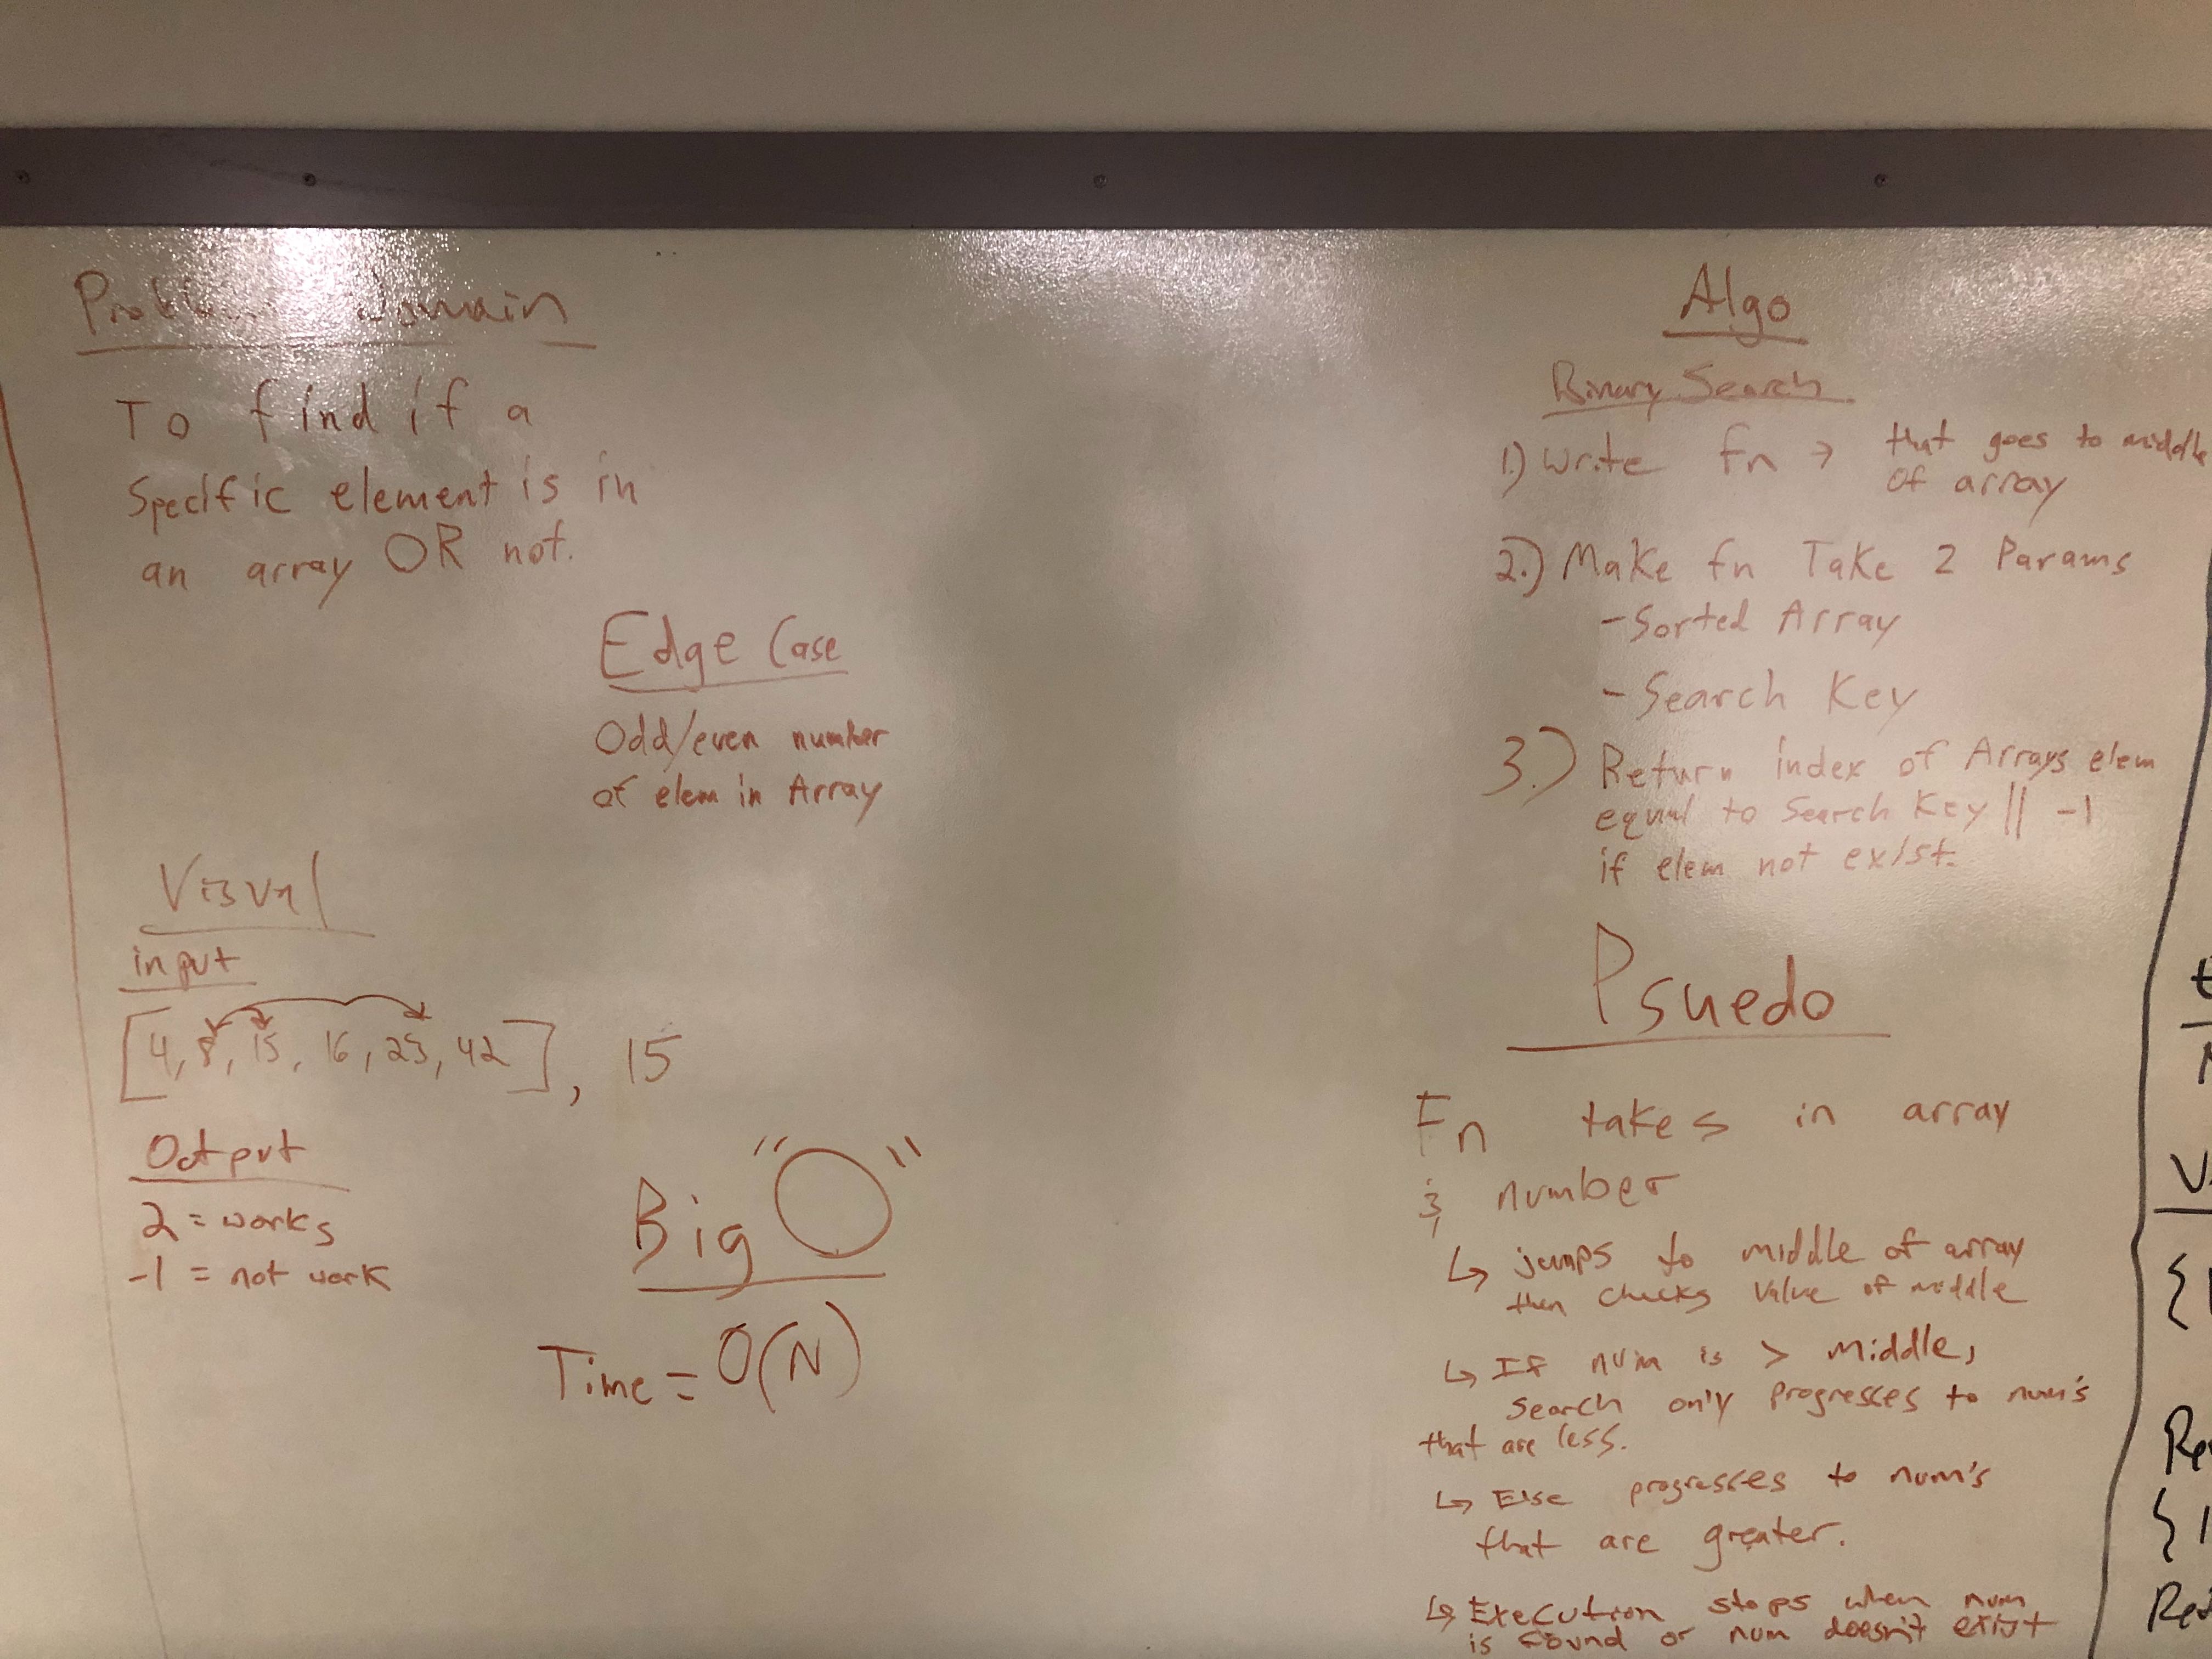 Problem Domain
To find if a
specific element is in
an array OR not.
Edge Case
Odd/even number
of elem in Array
Visual
input
[4, 8, 15, 16, 23, 42], 15
Output
2 = works
-1 = not work
Big "O"
Time = O(N)
Algo
Binary Search
1.) Write fn → that goes to middle
of array
2.) Make fn Take 2 Params
- Sorted Array
- Search Key
3.) Return index of Arrays elem
equal to Search Key || -1
if elem not exist.
Psuedo
Fn takes in array
& number
↳ jumps to middle of array
then checks value of middle
↳ If num is > middle,
search only progresses to num's
that are less.
↳ Else progresses to num's
that are greater.
↳ Execution stops when num
is found or num doesn't exist